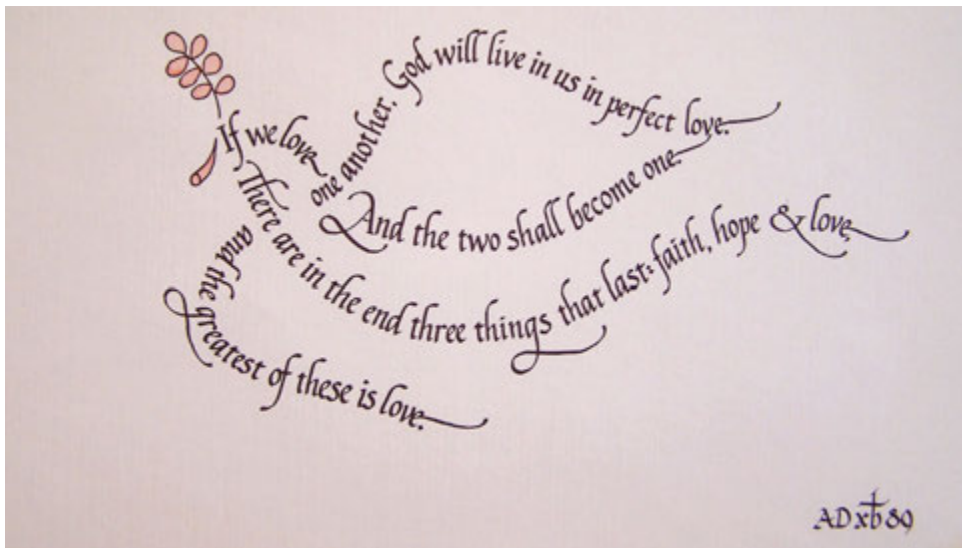 If we love
one another, God will live in us in perfect love.
And the two shall become one.
There are in the end three things that last: faith, hope & love,
and the greatest of these is love.
AD xb 89